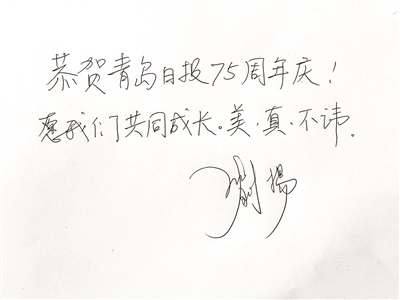 恭贺青岛日报75周年庆!
愿我们共同成长。美·真·不讳。